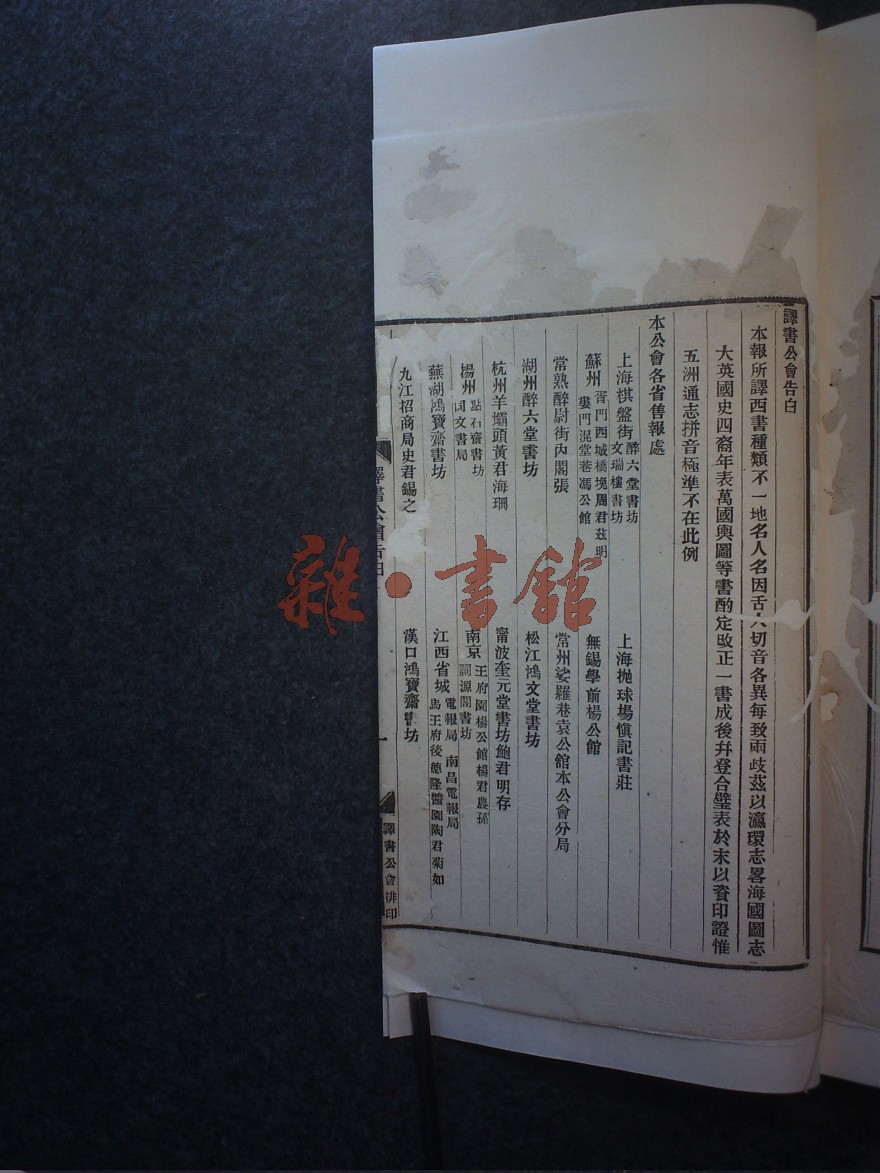 譯書公會告白
本報所譯西書種類不一地名人名因舌人切音各異每致兩歧茲以瀛環志畧海國圖志
大英國史四裔年表萬國輿圖等書酌定改正一書成後幷登合璧表於末以資印證惟
五洲通志拼音極準不在此例
本公會各省售報處
上海棋盤街 醉六堂書坊 文瑞樓書坊
上海拋球場愼記書莊
蘇州 胥門西城橋堍周君茲明 婁門混堂巷馮公館
無錫學前楊公館
常熟醉尉街內閣張
常州娑羅巷袁公館本公會分局
湖州醉六堂書坊
松江鴻文堂書坊
杭州羊壩頭黃君海珊
甯波奎元堂書坊鮑君明存
揚州 點石齋書坊 同文書局
南京 王府園楊公館楊君農孫 詞源閣書坊
蕪湖鴻寶齋書坊
江西省城 電報局 南昌電報局 馬王府後德隆醬園陶君菊如
九江招商局史君錫之
漢口鴻寶齋書坊
譯書公會告白
一
譯書公會排印
雜·書館